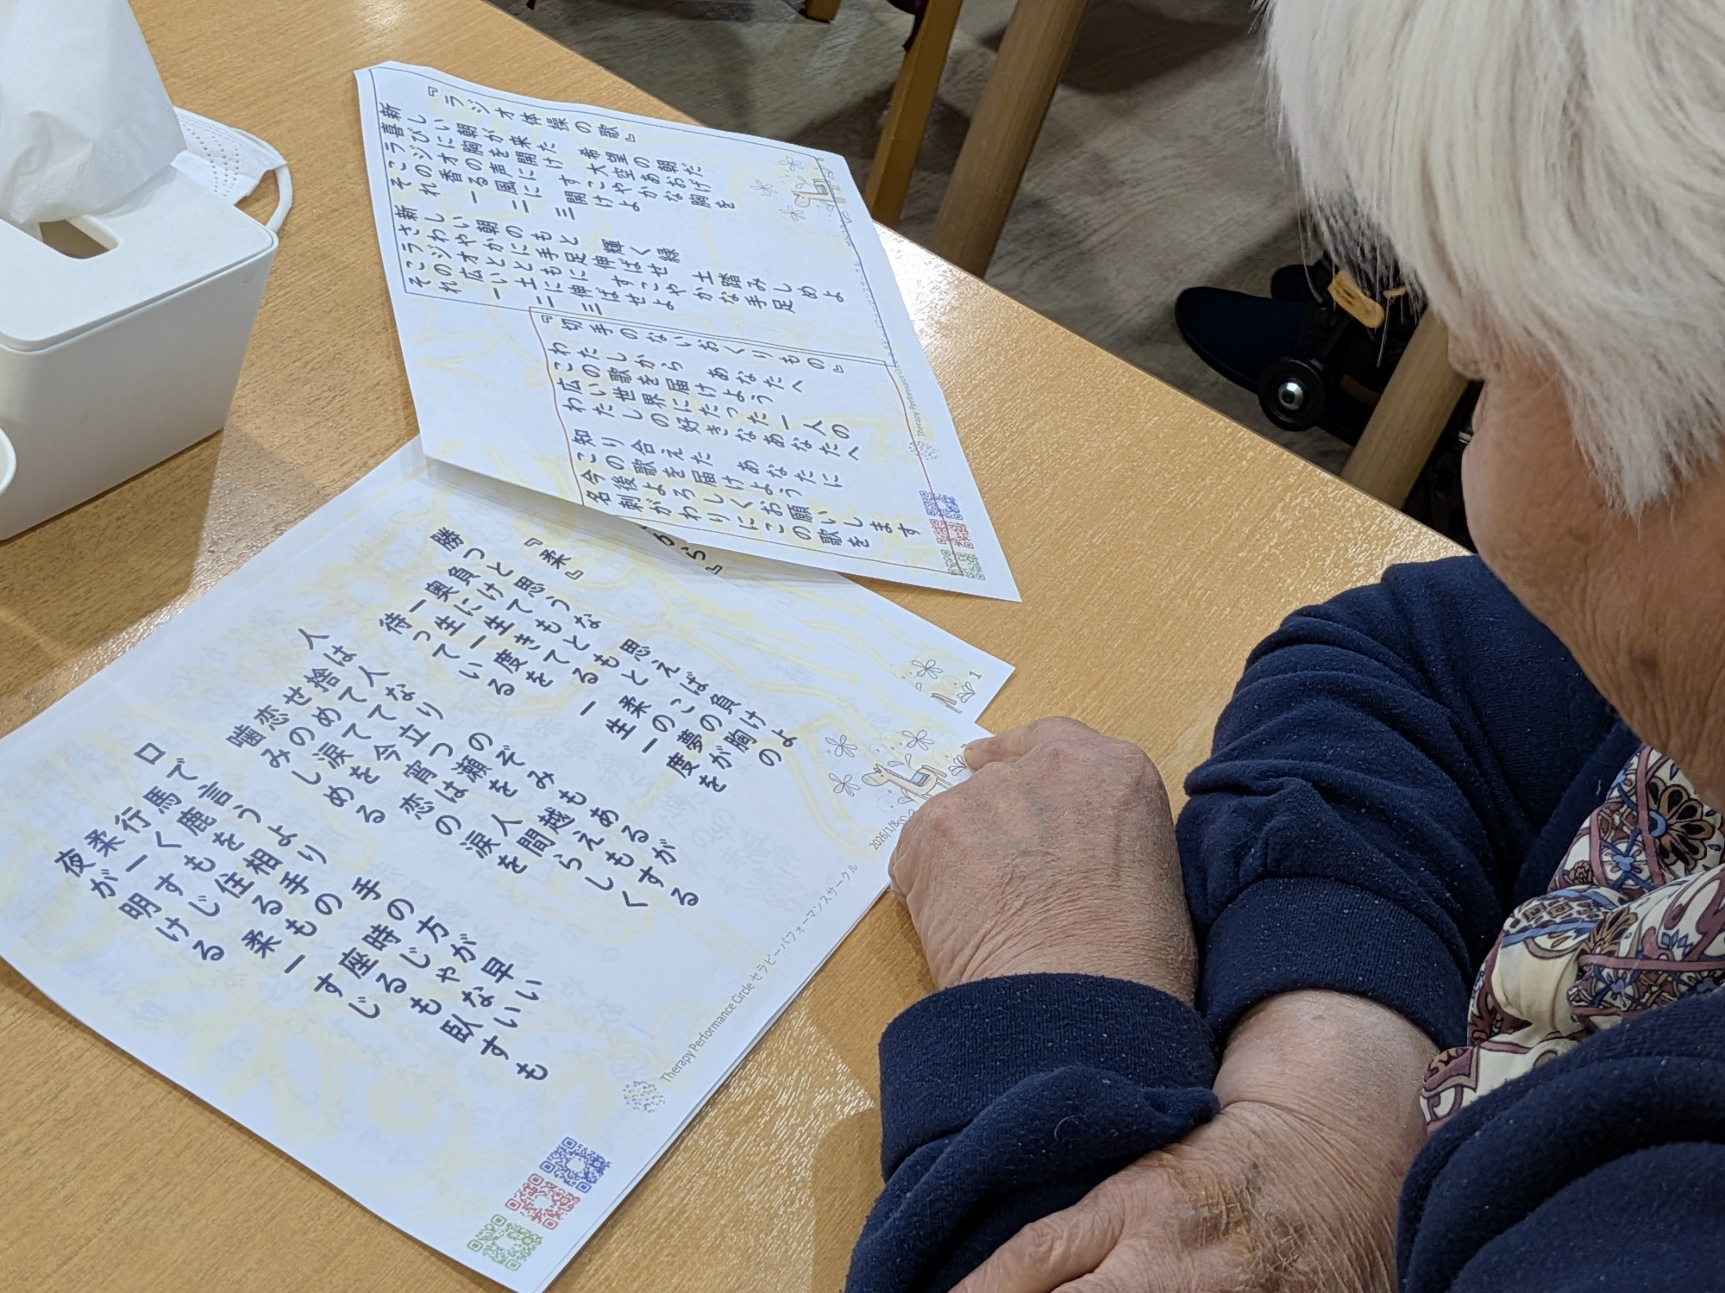 『ラジオ体操の歌』
新しい朝が来た 希望の朝だ
喜びに胸を開け 大空あおげ
ラジオの声に すこやかな胸を
この香る風に 開けよ
それ 一 二 三
新しい朝のもと 輝く緑
さわやかに手足伸ばせ 土踏みしめよ
ラジオとともに すこやかな手足
この広い土に伸ばせよ
それ 一 二 三
『切手のないおくりもの』
わたしから あなたへ
この歌を届けよう
広い世界にたった一人の
わたしの好きなあなたへ
知り合えた あなたに
この歌を届けよう
今後よろしくお願いします
名刺がわりにこの歌を
ら』
1
『柔』
勝つと思うな 思えば負けよ
負けてもともと この胸の
奥に生きてる 柔の夢が
一生一度を 一生一度を
待っている
人は人なり のぞみもあるが
捨てて立つ瀬を 越えもする
せめて今宵は 人間らしく
恋の涙を 恋の涙を
噛みしめる
口で言うより 手の方が早い
馬鹿を相手の 時じゃない
行くも住るも 座るも臥すも
柔一すじ 柔一すじ
夜が明ける
Therapy Performance Circle セラピーパフォーマンスサークル